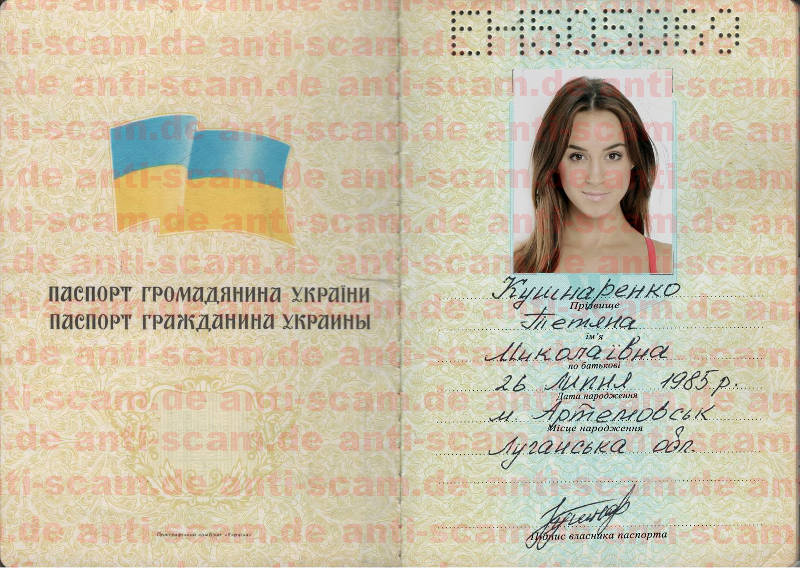 anti-scam.de anti-scam.de anti-scam.de
ПАСПОРТ ГРОМАДЯНИНА УКРАЇНИ
ПАСПОРТ ГРАЖДАНИНА УКРАИНЫ
ЕН505069
Кушнаренко
Прізвище
Тетяна
ім'я
Миколаївна
по батькові
26 липня 1985 р.
Дата народження
м. Артемовськ
Місце народження
Луганська обл.
Підпис власника паспорта